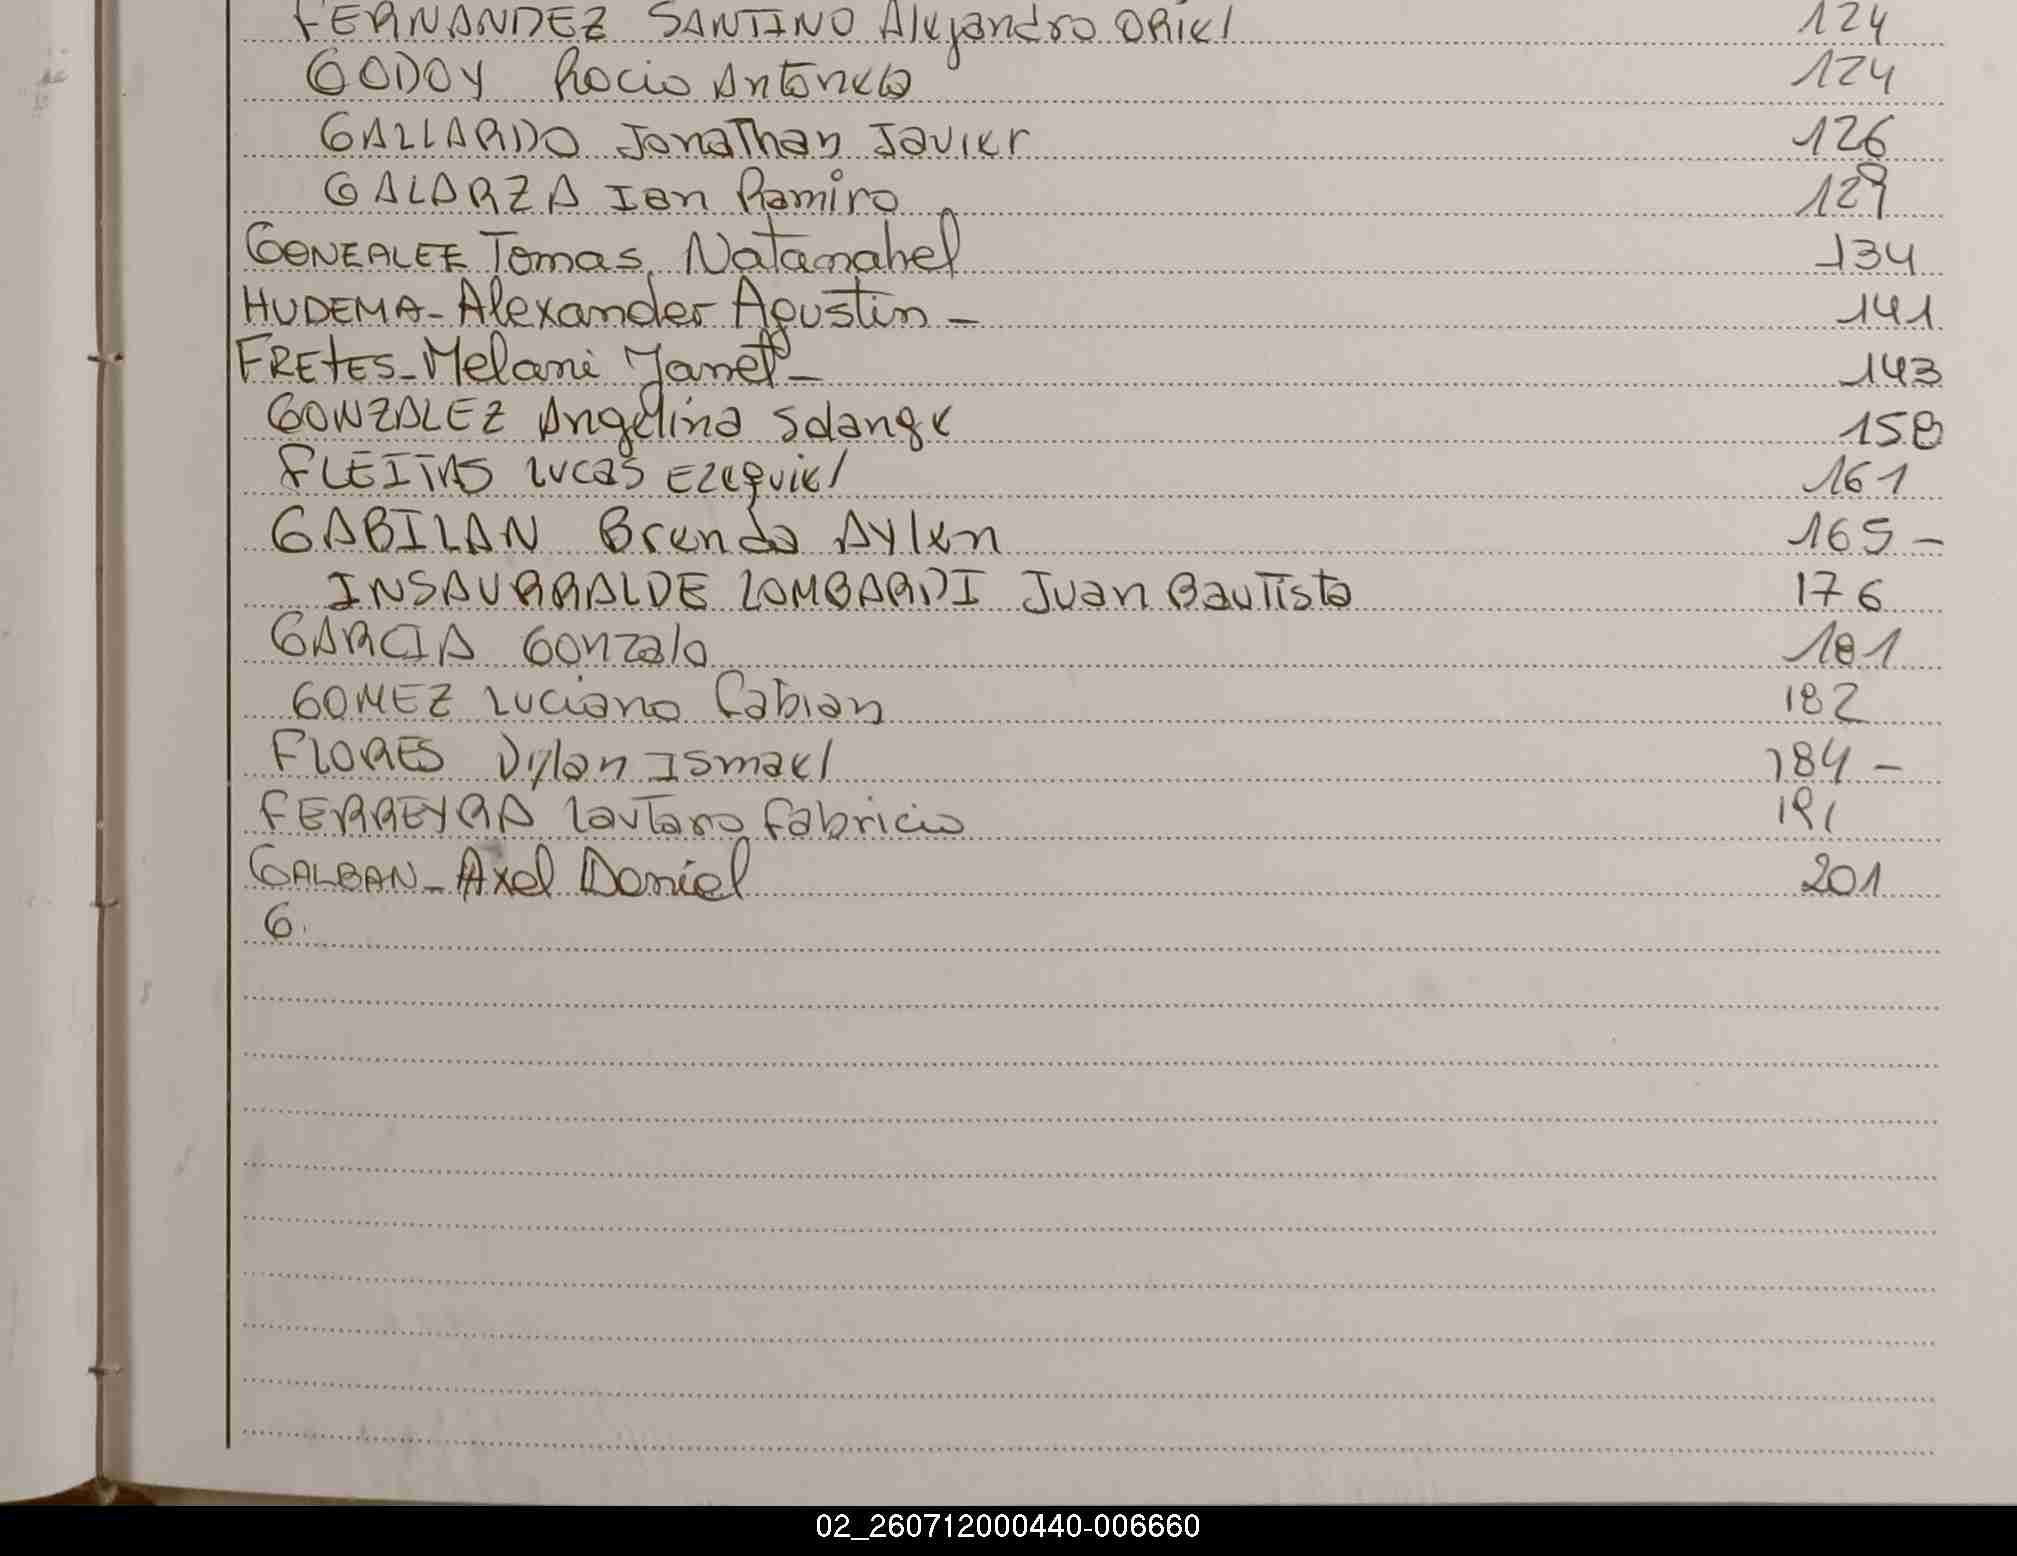 FERNANDEZ SANTINO Alejandro ORIEL 124
GODOY Rocio Antonela 124
GALLARDO Jonathan Javier 126
GALARZA Ian Ramiro 129
GONZALEZ Tomas Natanahel 134
HUDEMA - Alexander Agustin - 141
FRETES - Melani Janet - 143
GONZALEZ Angelina Solange 158
FLEITAS Lucas Ezequiel 161
GABILAN Brenda Aylen 165 -
INSAURRALDE LOMBARDI Juan Bautista 176
GARCIA Gonzalo 181
GOMEZ Luciano Fabian 182
FLORES Dylan Ismael 184 -
FERREYRA Lautaro Fabricio 191
GALBAN - Axel Daniel 201
G.
02_260712000440-006660